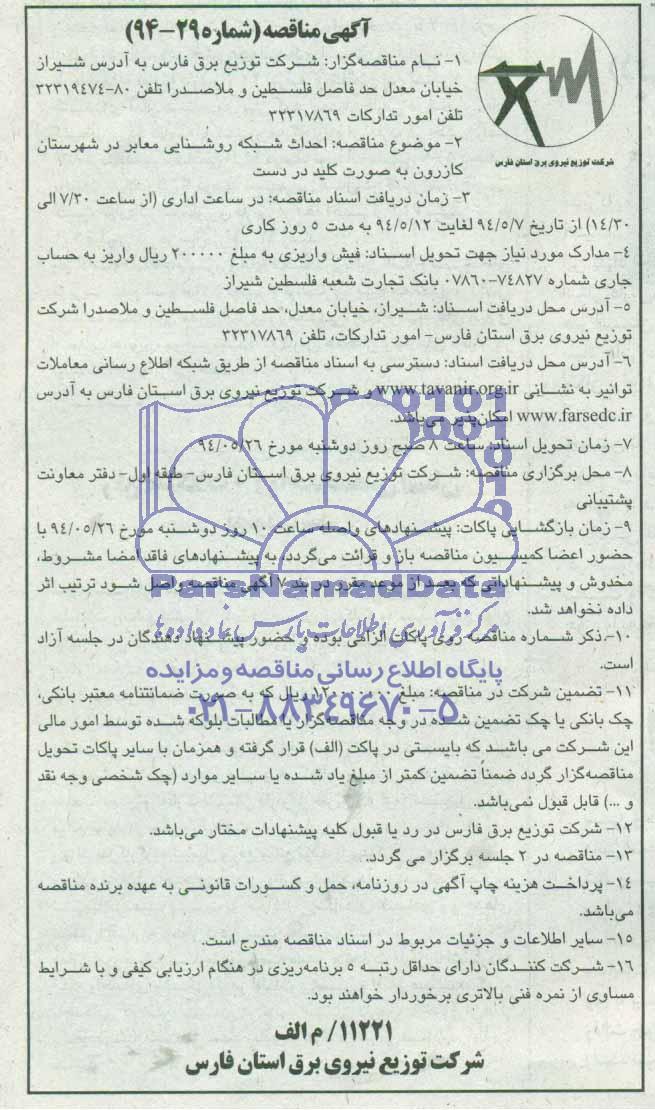 آگهی مناقصه (شماره ۲۹-۹۴)
شرکت توزیع نیروی برق استان فارس
۱- نـام مناقصه‌گزار: شـرکت توزیع برق فارس به آدرس شیراز
خیابان معدل حد فاصل فلسطین و ملاصدرا تلفن ۸۰-۳۲۳۱۹۴۷۴
تلفن امور تدارکات ۳۲۳۱۷۸۶۹
۲- موضوع مناقصه: احداث شـبکه روشـنایی معابر در شهرستان
کازرون به صورت کلید در دست
۳- زمان دریافت اسناد مناقصه: در ساعت اداری (از ساعت ۷/۳۰ الی
۱۴/۳۰) از تاریخ ۹۴/۵/۷ لغایت ۹۴/۵/۱۲ به مدت ۵ روز کاری
۴- مدارک مورد نیاز جهت تحویل اسـناد: فیش واریزی به مبلغ ۲۰۰۰۰۰ ریال واریز به حساب
جاری شماره ۷۴۸۲۷-۰۷۸۶۰ بانک تجارت شعبه فلسطین شیراز
۵- آدرس محل دریافت اسـناد: شـیراز، خیابان معدل، حد فاصل فلسـطین و ملاصدرا شرکت
توزیع نیروی برق استان فارس- امور تدارکات، تلفن ۳۲۳۱۷۸۶۹
۶- آدرس محل دریافت اسناد: دسترسی به اسناد مناقصه از طریق شبکه اطلاع رسانی معاملات
توانیر به نشـانی www.tavanir.org.ir و شـرکت توزیع نیروی برق اسـتان فارس به آدرس
www.farsedc.ir امکان‌پذیر می‌باشد.
۷- زمان تحویل اسناد: ساعت ۸ صبح روز دوشنبه مورخ ۹۴/۰۵/۲۶
۸- محل برگزاری مناقصه: شـرکت توزیع نیروی برق اسـتان فارس- طبقه اول- دفتر معاونت
پشتیبانی
۹- زمان بازگشـایی پاکات: پیشـنهادهای واصله ساعت ۱۰ روز دوشـنبه مورخ ۹۴/۰۵/۲۶ با
حضور اعضا کمیسـیون مناقصه باز و قرائت می‌گردد. به پیشـنهادهای فاقد امضا مشـروط،
مخدوش و پیشـنهاداتی که بعـد از موعد مقرر در بند ۷ آگهی مناقصه واصل شـود ترتیب اثر
داده نخواهد شد.
۱۰- ذکر شـماره مناقصه روی پاکات الزامی بوده و حضور پیشـنهاد دهندگان در جلسه آزاد
است.
۱۱- تضمین شرکت در مناقصه: مبلغ ریال که به صورت ضمانتنامه معتبر بانکی،
چک بانکی یا چک تضمین شـده در وجه مناقصه‌گزار یا مطالبات بلوکه شـده توسط امور مالی
این شـرکت می باشـد که بایسـتی در پاکت (الف) قرار گرفته و همزمان با سـایر پاکات تحویل
مناقصه‌گزار گردد ضمناً تضمین کمتر از مبلغ یاد شـده یا سـایر موارد (چک شخصی وجه نقد
و ...) قابل قبول نمی‌باشد.
۱۲- شرکت توزیع برق فارس در رد یا قبول کلیه پیشنهادات مختار می‌باشد.
۱۳- مناقصه در ۲ جلسه برگزار می گردد.
۱۴- پرداخـت هزینه چاپ آگهی در روزنامه، حمل و کسـورات قانونـی به عهده برنده مناقصه
می‌باشد.
۱۵- سایر اطلاعات و جزئیات مربوط در اسناد مناقصه مندرج است.
۱۶- شـرکت کننـدگان دارای حداقل رتبـه ۵ برنامه‌ریزی در هنگام ارزیابی کیفی و با شـرایط
مساوی از نمره فنی بالاتری برخوردار خواهند بود.
۱۱۲۲۱/ م الف
شرکت توزیع نیروی برق استان فارس
ParsNamadData
مرکز فرآوری اطلاعات پارس نماد داده‌ها
پایگاه اطلاع رسانی مناقصه و مزایده
۰۲۱-۸۸۳۴۹۶۷۰-۵